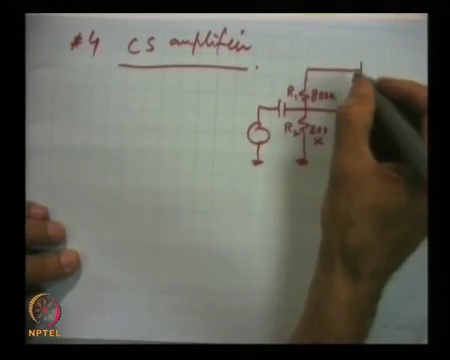 #4 CS amplifier
R1 800k
R2 200
K
NPTEL